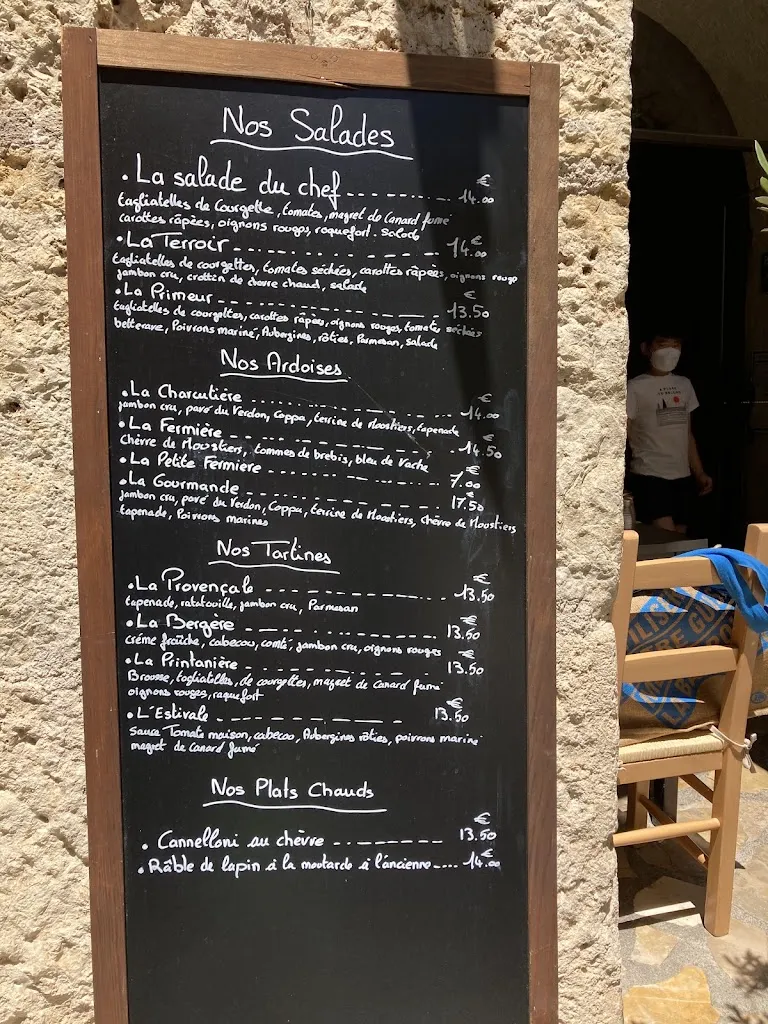 Nos Salades
• La salade du chef ------ 14.00 €
tagliatelles de courgette, tomates, magret de canard fumé
carottes râpées, oignons rouges, roquefort. salade
• La Terroir ------ 14.00 €
tagliatelles de courgettes, tomates séchées, carottes râpées, oignons rouge
jambon cru, crottin de chèvre chaud, salade
• La Primeur ------ 13.50 €
tagliatelles de courgettes, carottes râpées, oignons rouges, tomates séchées
betterave, Poivrons mariné, Aubergines, rôties, Parmesan, salade
Nos Ardoises
• La Charcutière ------ 14.00 €
jambon cru, pavé du Verdon, Coppa, terrine de Moustiers, tapenade
• La Fermière ------ 14.50 €
Chèvre de Moustiers, tommes de brebis, bleu de vache
• La Petite Fermière ------ 7.00 €
• La Gourmande ------ 17.50
jambon cru, pavé du Verdon, Coppa, terrine de Moustiers, chèvre de Moustiers
tapenade, Poivrons marinés
Nos Tartines
• La Provençale ------ 13.50 €
tapenade, ratatouille, jambon cru, Parmesan
• La Bergère ------ 13.50 €
crème fraîche, cabecou, comté, jambon cru, oignons rouges
• La Printanière ------ 13.50 €
Brousse, tagliatelles, de courgettes, magret de canard fumé
oignons rouges, roquefort
• L'Estivale ------ 13.50 €
Sauce Tomate maison, cabecou, Aubergines rôties, poivrons mariné
magret de canard fumé
Nos Plats Chauds
• Cannelloni au chèvre ------ 13.50 €
• Râble de lapin à la moutarde à l'ancienne ---- 14.00 €